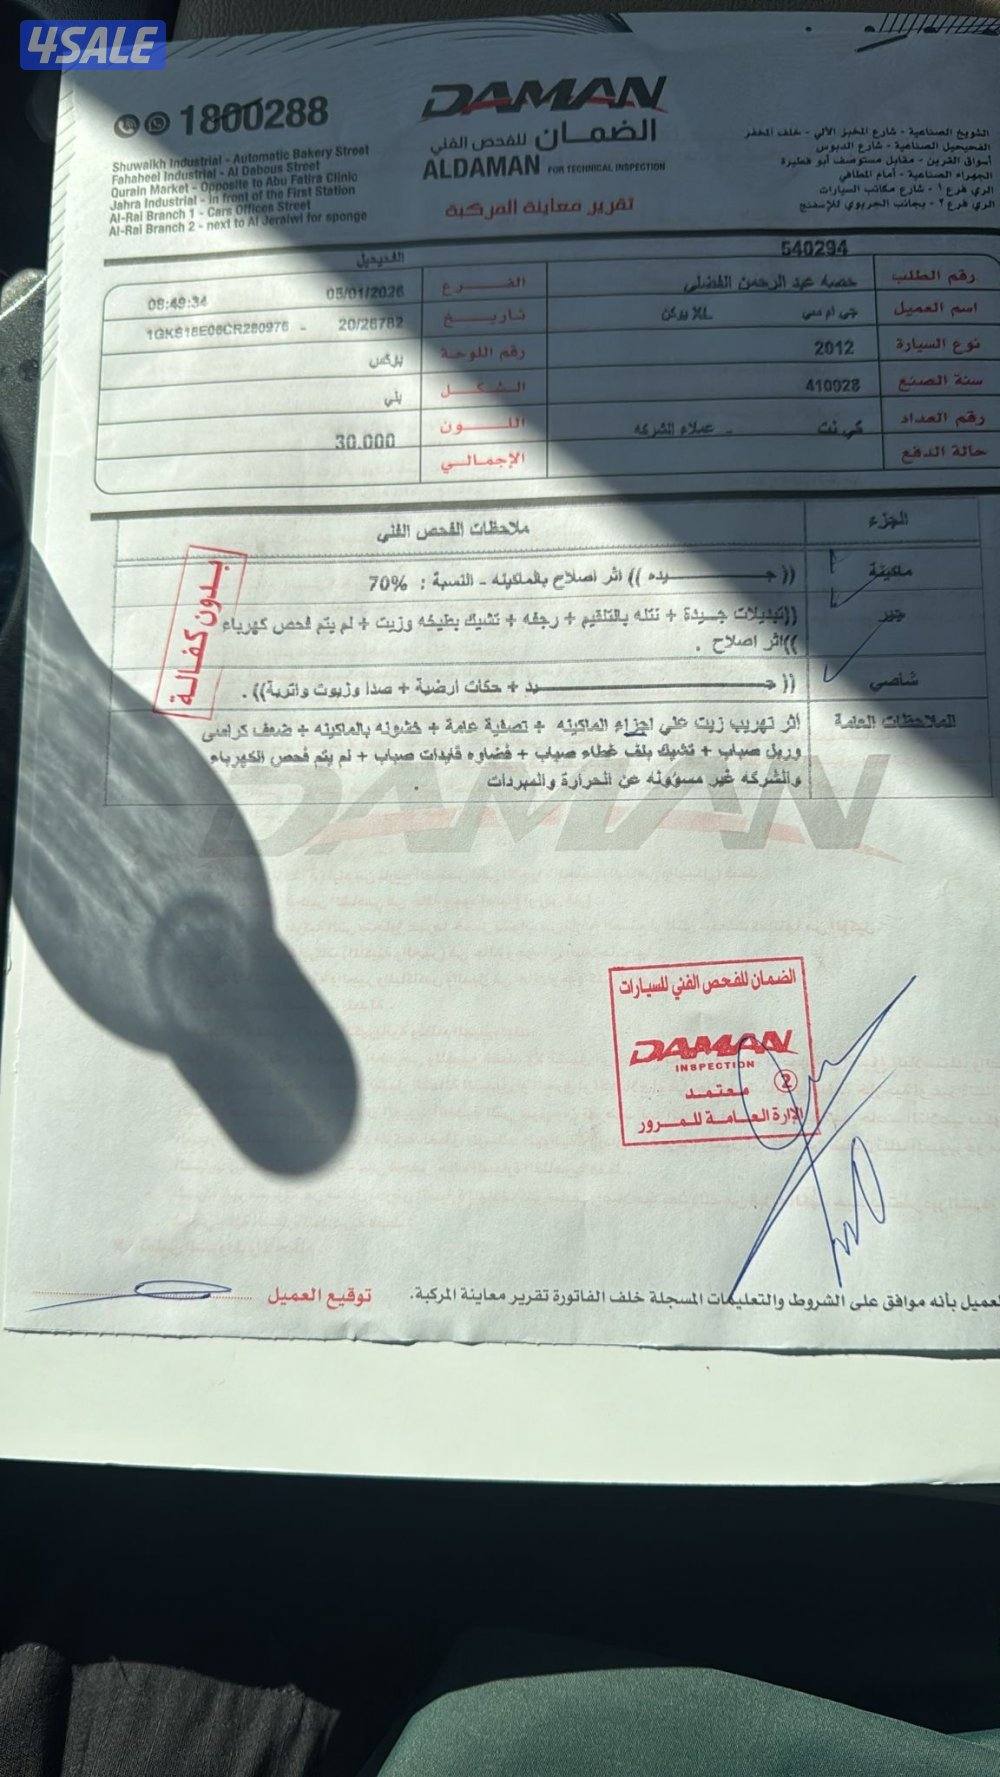 4SALE
1800288
DAMAN
الضمان للفحص الفني
ALDAMAN FOR TECHNICAL INSPECTION
تقرير معاينة المركبة
Shuwaikh Industrial - Automatic Bakery Street
Fahaheel Industrial - Al Dabous Street
Qurain Market - Opposite to Abu Fatira Clinic
Jahra Industrial - in front of the First Station
Al-Rai Branch 1 - Cars Offices Street
Al-Rai Branch 2 - next to Al Jeraiwi for sponge
الشويخ الصناعية - شارع المخبز الآلي - خلف المخفر
الفحيحيل الصناعية - شارع الدبوس
أسواق القرين - مقابل مستوصف أبو فطيرة
الجهراء الصناعية - أمام المطافي
الري فرع ١ - شارع مكاتب السيارات
الري فرع ٢ - بجانب الجريوي للإسفنج
رقم الطلب 540294 الفرع الفحيحيل
اسم العميل حصه عبد الرحمن الفضلي تاريخ 05/01/2026 08:49:34
نوع السيارة جي ام سي يوكن XL رقم اللوحة 20/26782 - 1GKS18E06CR280976
سنة الصنع 2012 الشكل بوكس
رقم العداد 410028 اللون بني
حالة الدفع كي نت - عملاء الشركه الإجمالي 30.000
الجزء ملاحظات الفحص الفني
ماكينة ((جـــيده)) اثر اصلاح بالماكينه - النسبة : 70%
جير ((تبديلات جـيدة + نتله بالتلقيم + رجفه + تشيك بطيخه وزيت + لم يتم فحص كهرباء
))اثر اصلاح .
شاصي ((جـــيد + حكات أرضية + صدا وزيوت واتربة)) .
الملاحظات العامة اثر تهريب زيت علي اجزاء الماكينه + تصفية عامة + خشونه بالماكينه + ضعف كراسي
وربل صباب + تشيك بلف غطاء صباب + فضاوه قايدات صباب + لم يتم فحص الكهرباء
والشركه غير مسؤوله عن الحرارة والمبردات
بدون كفالة
DAMAN
الضمان للفحص الفني للسيارات
DAMAN
INSPECTION
معتمد 2
الإدارة العامة للمرور
العميل بأنه موافق على الشروط والتعليمات المسجلة خلف الفاتورة تقرير معاينة المركبة. توقيع العميل